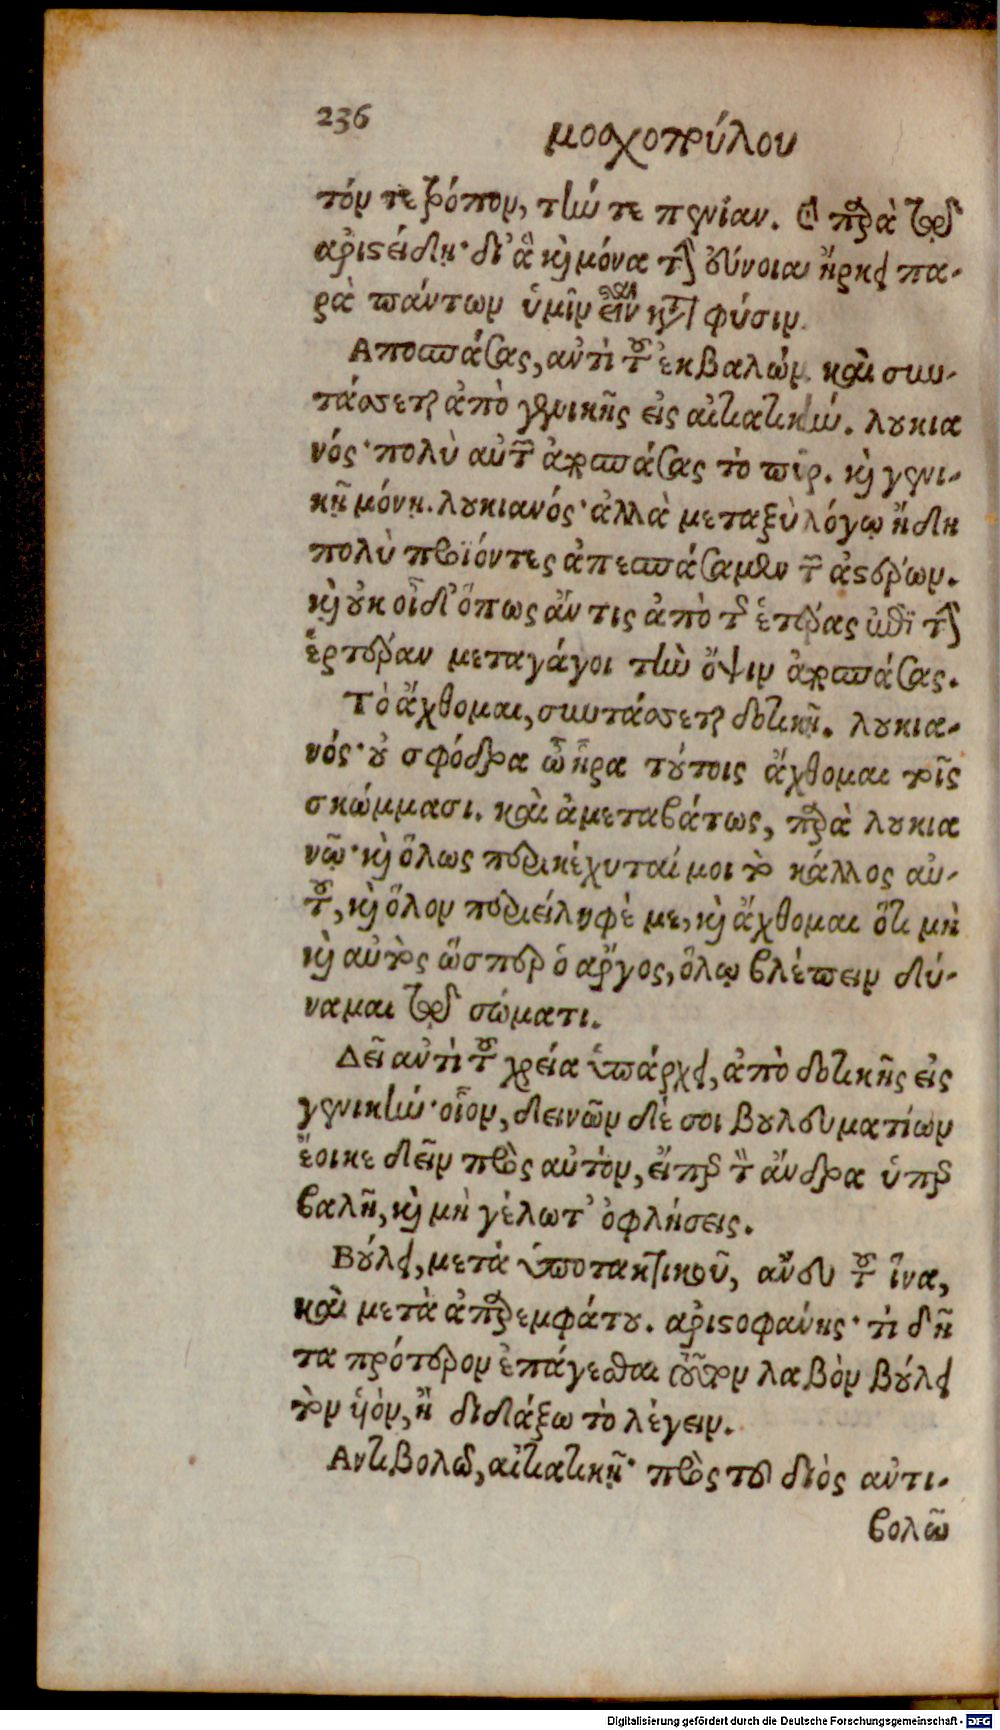 236
μοσχοπούλου
τόν τε τρόπον, τὴν τε πενίαν. καὶ παρὰ τῷ
ἀριστείδῃ· δι' ἃ καὶ μόνα τὴν εὔνοιαν ἤρκει πα-
ρὰ πάντων ὑμῖν εἶναι κατὰ φύσιν.
Αποσπάσας, αντὶ τοῦ ἐκβαλὼν καὶ συν-
τάσσεται ἀπὸ γενικῆς εἰς αἰτιατικήν. λουκια
νός· πολὺ αὐτῶν ἀποσπάσας τὸ πῦρ. καὶ γενι-
κῇ μόνῃ. λουκιανός· ἀλλὰ μεταξὺ λόγῳ ἤδη
πολὺ προϊόντες ἀπεσπάσαμεν τῶν ἀστέρων.
καὶ οὐκ οἶδ' ὅπως ἄν τις ἀπὸ τῆς ἑτέρας ἐπὶ τὴν
ἑτέραν μεταγάγοι τὴν ὄψιν ἀποσπάσας.
Τὸ ἄχθομαι, συντάσσεται δοτικῇ. λουκια-
νός· οὐ σφόδρα ὦ ἥρα τούτοις ἄχθομαι τοῖς
σκώμμασι. καὶ ἀμεταβάτως, παρὰ λουκια
νῷ· καὶ ὅλως περικέχυταί μοι τὸ κάλλος αὐ-
τοῦ, καὶ ὅλον περιείληφέ με, καὶ ἄχθομαι ὅτι μὴ
καὶ αὐτὸς ὥσπερ ὁ ἄργος, ὅλῳ βλέπειν δύ-
ναμαι τῷ σώματι.
Δεῖ αντὶ τοῦ χρεία ὑπάρχει, ἀπὸ δοτικῆς εἰς
γενικήν· οἷον, δεινῶν δέ σοι βουλευματίων
ἔοικε δεῖν πρὸς αὐτόν, εἴπερ τὸν ἄνδρα ὑπερ
βαλῇ, καὶ μὴ γέλωτ' ὀφλήσεις.
Βούλει, μετὰ ὑποτακτικοῦ, ἄνευ τοῦ ἵνα,
καὶ μετὰ ἀπαρεμφάτου. ἀριστοφάνης· τί δῆ
τα πρότερον ἐπάγεσθαι τοῦτον λαβὸν βούλει
τὸν ὑόν, ἢ διδάξω τὸ λέγειν.
Αντιβολῶ, αἰτιατικῇ· πρὸς τοῦ διὸς αντι-
βολῶ
Digitalisierung gefördert durch die Deutsche Forschungsgemeinschaft - DFG